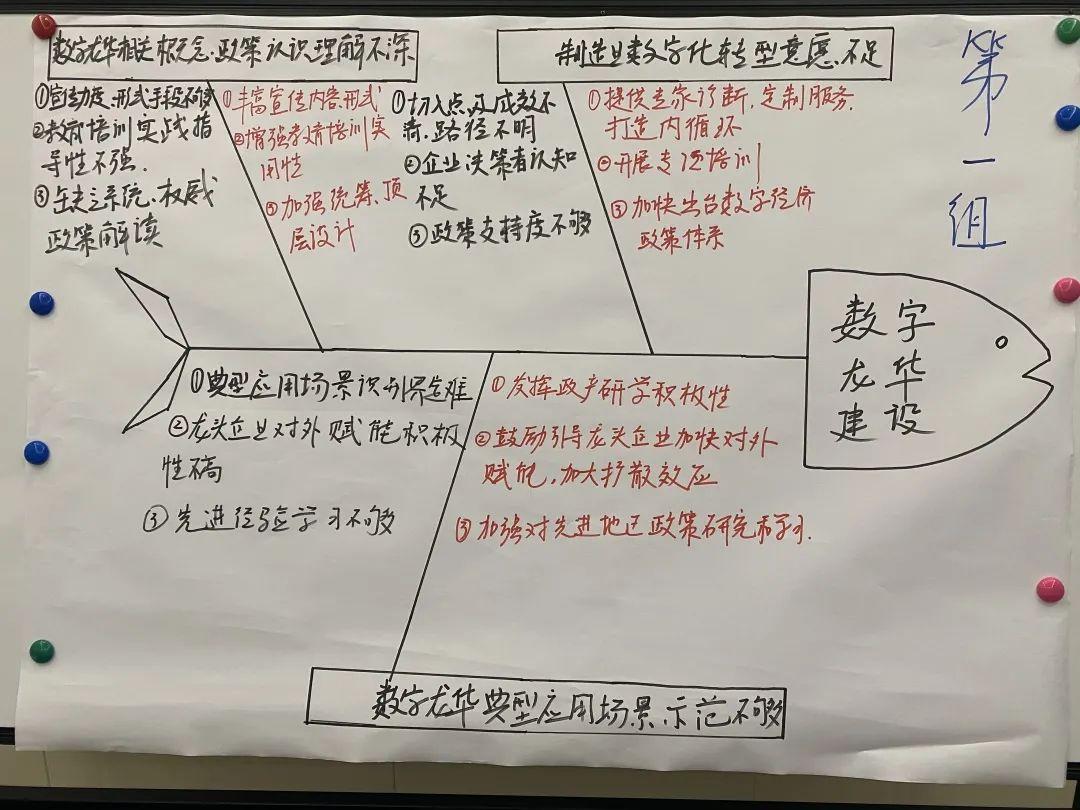 数字龙华相关概念、政策认识理解不深
①宣传力度、形式手段不够
②教育培训实战指
导性不强.
③缺乏系统、权威
政策解读
①丰富宣传内容、形式
②增强教育培训实
用性
③加强统筹、顶
层设计
制造业数字化转型意愿不足
①切入点及成效不
清、路径不明
②企业决策者认知
不足
③政策支持度不够
①提供专家诊断、定制服务.
打造内循环
②开展专项培训
③加快出台数字经济
政策体系
第
一
组
数字
龙华
建设
①典型应用场景识别保难
②龙头企业对外赋能积极
性不高
③先进经验学习不够
①发挥政产研学积极性
②鼓励引导龙头企业加快对外
赋能,加大扩散效应
③加强对先进地区政策研究和学习.
数字龙华典型应用场景示范不够